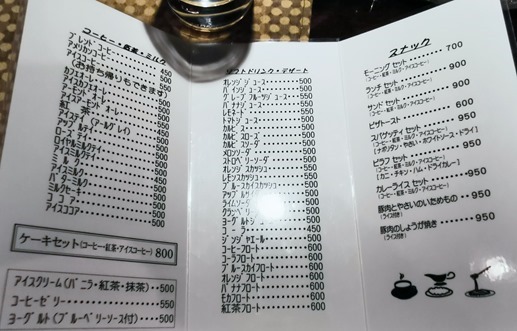 コーヒー・紅茶・ミルク
ブレンドコーヒー 450
アメリカンコーヒー
アイスコーヒー
(お持ち帰りもできます)
カフェオーレ
アーモンドオーレ
アイスアーモンドオーレ
紅茶
アイスティー(アールグレイ) 450
ローズティー
ロイヤルミルクティ 500
アイスミルクティ
ミルク
アイスミルク
バナナミルク
ミルクセーキ 500
ココア 500
アイスココア 500
ケーキセット(コーヒー・紅茶・アイスコーヒー) 800
アイスクリーム(バニラ・紅茶・抹茶) 500
コーヒーゼリー 550
ヨーグルト(ブルーベリーソース付) 500
ソフトドリンク・デザート
オレンジジュース 500
パインジュース 500
グレープフルーツジュース 500
バナナジュース 550
レモネード 550
トマトジュース 500
カルピス 500
カルピスローズ 500
カルピスソーダ 500
メロンソーダ 500
ストロベリーソーダ 500
オレンジスカッシュ 550
レモンスカッシュ 550
ブルースカイスカッシュ 550
ライムソーダ
ヨーグルトジュース
コーラ 450
ジンジャエール 500
コーヒーフロート 600
コーラフロート 600
ブルースカイフロート 600
オレンジフロート 600
バナナフロート 600
モカフロート 600
紅茶フロート 600
スナック
モーニングセット 700
(コーヒー・紅茶・ミルク・アイスコーヒー)
ランチセット 900
(コーヒー・紅茶・ミルク・アイスコーヒー)
サンドセット 900
(コーヒー・紅茶・ミルク・アイスコーヒー)
ピザトースト 600
スパゲッティセット 950
(コーヒー・紅茶・ミルク・アイスコーヒー)
[ナポリタン・やさい・ホワイトソース・ドライ]
ピラフセット 950
(コーヒー・紅茶・ミルク・アイスコーヒー)
[カニ・チキン・ハム・ドライカレー]
カレーライスセット 950
(コーヒー・紅茶・ミルク・アイスコーヒー)
豚肉とやさいのいためもの 950
(ライス付き)
豚肉のしょうが焼き 950
(ライス付き)